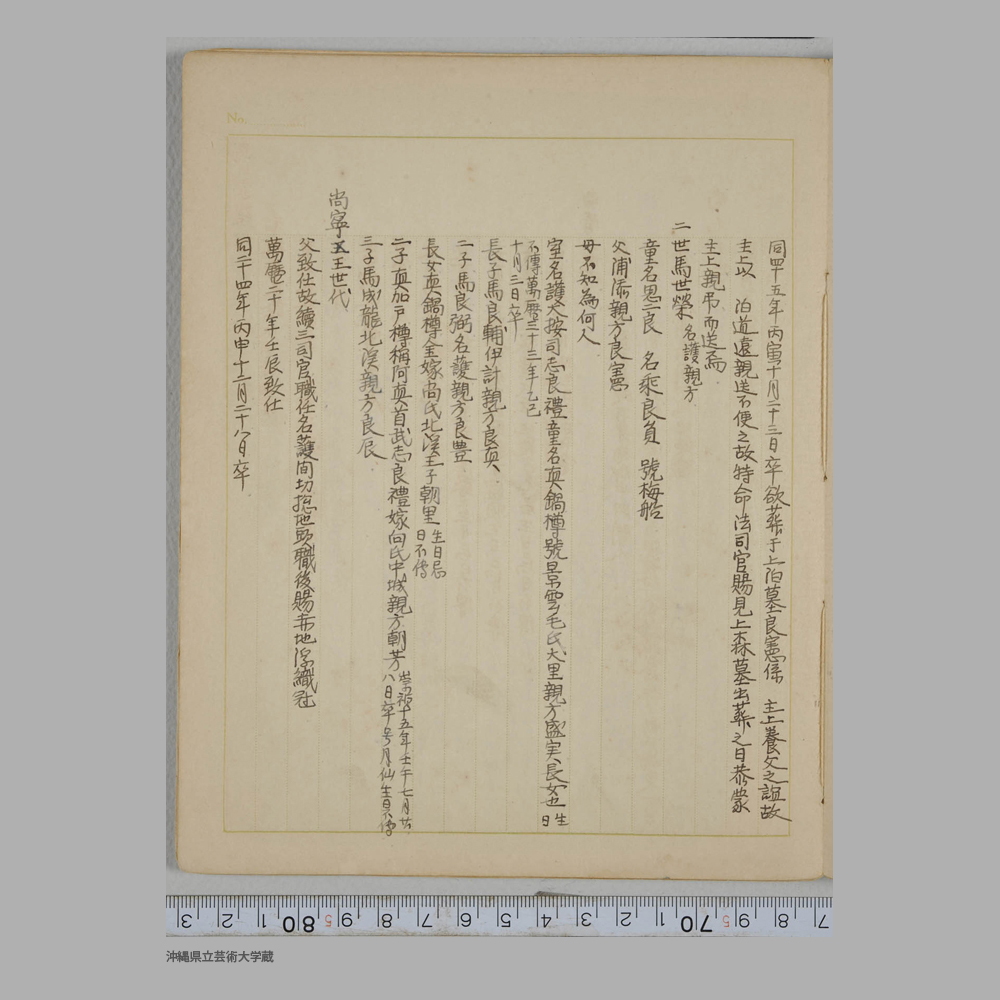 No.
同四十五年丙寅十月二十三日卒欲葬于上泊墓良憲係　主上養父之誼故
主上以　泊道遠親送不便之故特命法司官賜見上森墓出葬之日恭蒙
主上親弔而送焉
二世馬世榮 名護親方
童名思二良　名乘良員　號梅船
父浦添親方良憲
母不知為何人
室名護大按司志良禮童名真鍋樽號景雲毛氏大里親方盛実長女也 生日
不傳萬曆三十三年乙巳
十月三日卒
長子馬良輔伊計親方良真
二子馬良弼名護親方良豊
長女真鍋樽金嫁尚氏北谷王子朝里 生日忌日不傳
二子真加戸樽稱阿真首武志良禮嫁向氏中城親方朝芳 崇禎十五年壬午七月廿八日卒号月仙生日不傳
三子馬成龍北谷親方良辰
尚寧王世代
父致仕故續三司官職任名護間切惣地頭職後賜采地浮織冠
萬曆二十年壬辰致仕
同二十四年丙申十二月二十八日卒
3 2 1 80 9 8 7 6 5 4 3 2 1 70 9 8 7
5 5
沖縄県立芸術大学蔵